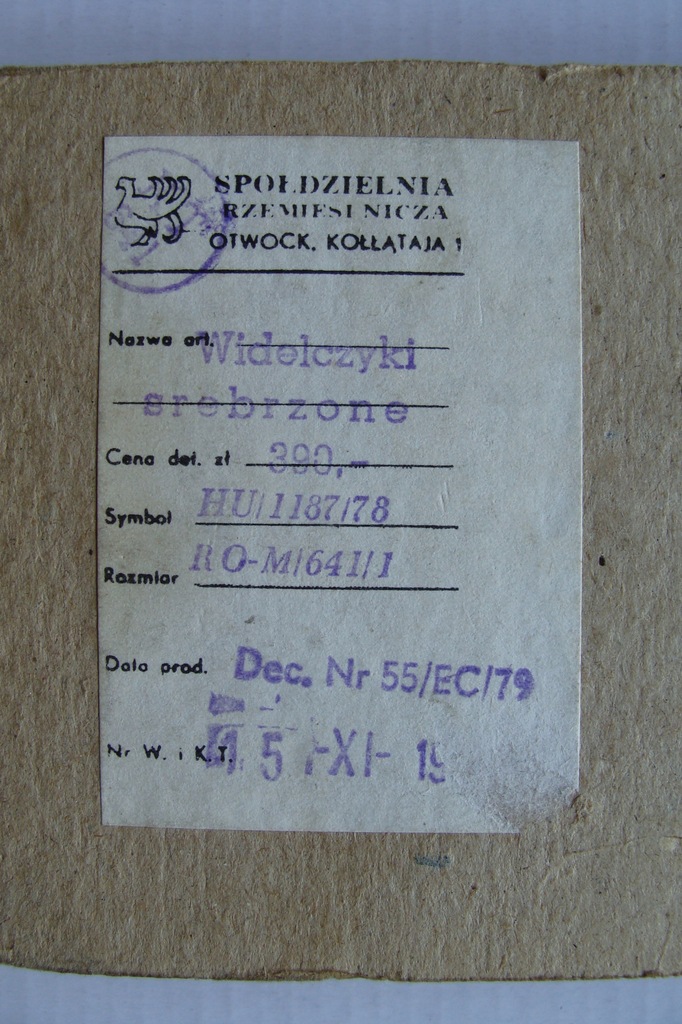 SPOŁDZIELNIA
RZEMIESLNICZA
OTWOCK, KOŁŁĄTAJA 1
Nazwa art. Widelczyki
srebrzone
Cena det. zł 390,-
Symbol HU/1187/78
Rozmiar RO-M/641/1
Data prod. Dec. Nr 55/EC/79
Nr W. i K.T. 5 -XI- 19